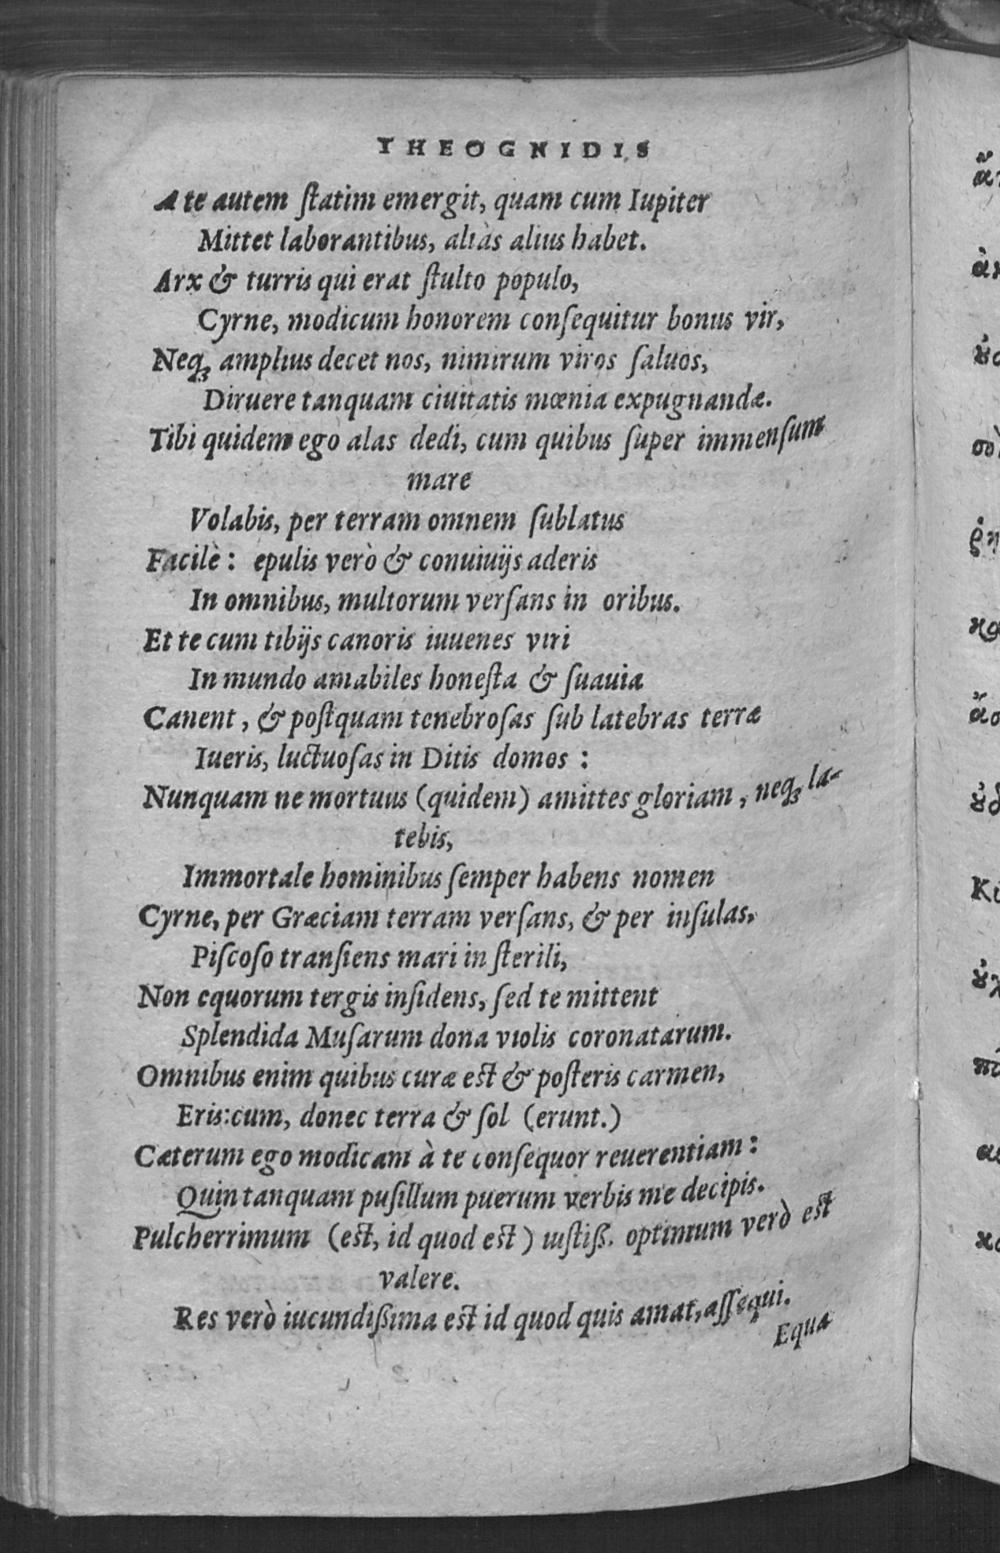 THEOGNIDIS
A te autem ſtatim emergit, quam cum Iupiter
Mittet laborantibus, aliàs alius habet.
Arx & turris qui erat ſtulto populo,
Cyrne, modicum honorem conſequitur bonus vir,
Neqꝫ amplius decet nos, nimirum viros ſaluos,
Diruere tanquam ciuitatis mœnia expugnandæ.
Tibi quidem ego alas dedi, cum quibus ſuper immenſum
mare
Volabis, per terram omnem ſublatus
Facilè: epulis verò & conuiuijs aderis
In omnibus, multorum verſans in oribus.
Et te cum tibijs canoris iuuenes viri
In mundo amabiles honeſta & ſuauia
Canent, & poſtquam tenebroſas ſub latebras terræ
Iueris, luctuoſas in Ditis domos:
Nunquam ne mortuus (quidem) amittes gloriam, neqꝫ la-
tebis,
Immortale hominibus ſemper habens nomen
Cyrne, per Græciam terram verſans, & per inſulas,
Piſcoſo tranſiens mari in ſterili,
Non equorum tergis inſidens, ſed te mittent
Splendida Muſarum dona violis coronatarum.
Omnibus enim quibus curæ eſt & poſteris carmen,
Eris:cum, donec terra & ſol (erunt.)
Cæterum ego modicam à te conſequor reuerentiam:
Quin tanquam puſillum puerum verbis me decipis.
Pulcherrimum (eſt, id quod eſt) iuſtiß. optimum verò eſt
valere.
Res verò iucundißima eſt id quod quis amat, aſſequi.
Equæ